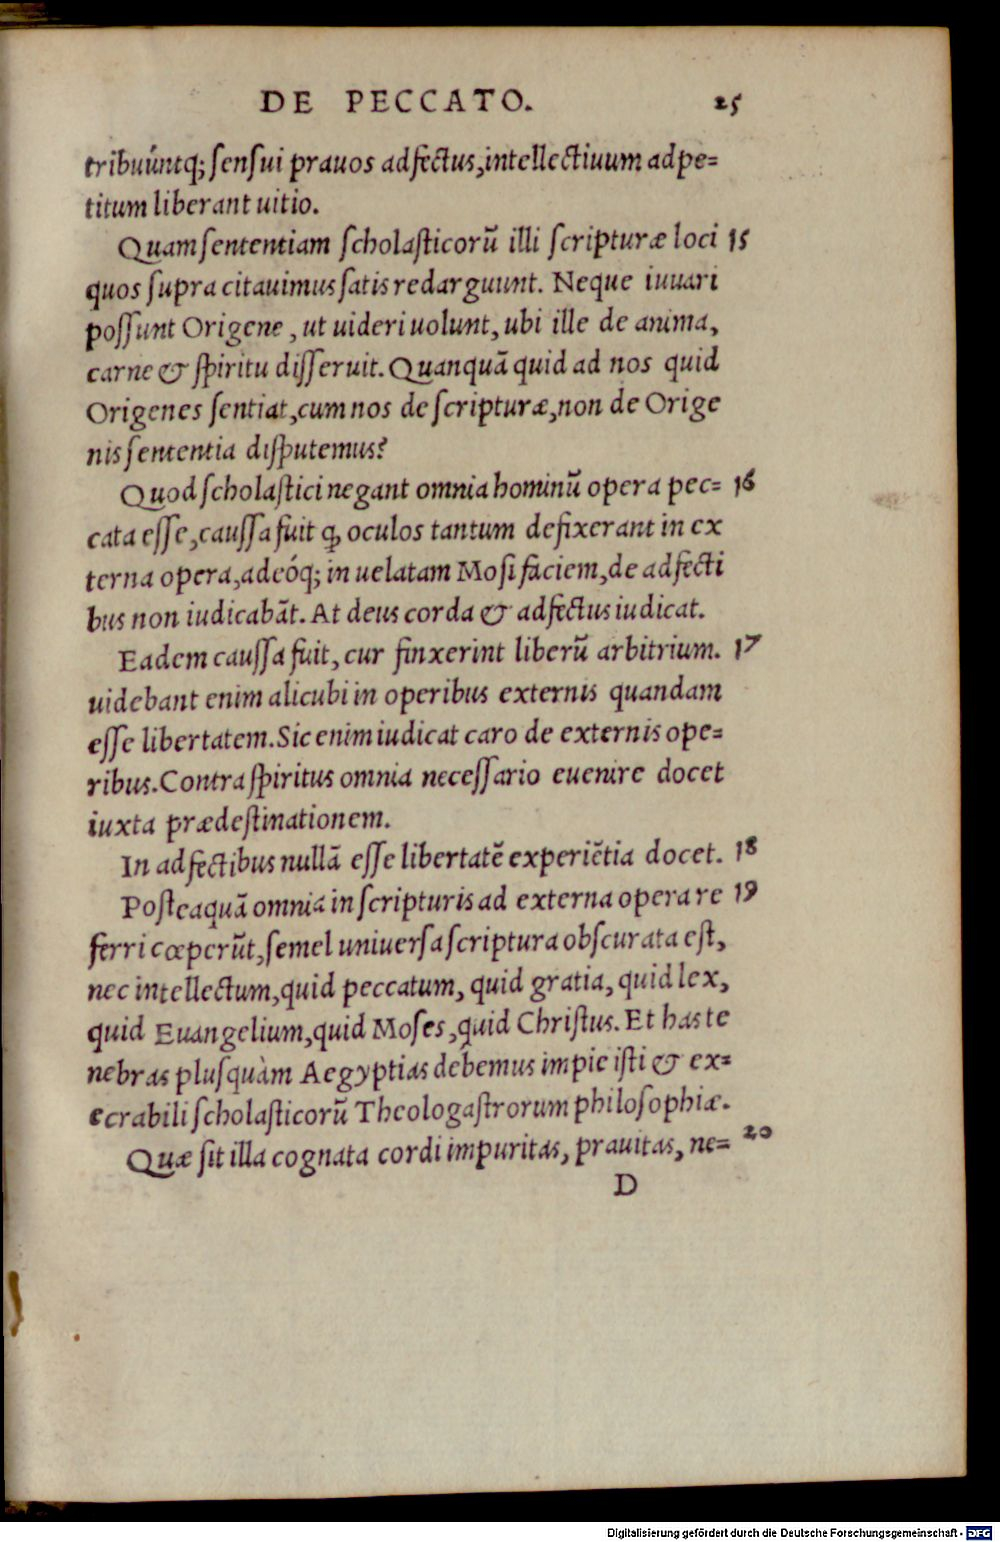 DE PECCATO. 25
tribuúntq; ſenſui prauos adfectus, intellectiuum adpe=
titum liberant uitio.
Quam ſententiam ſcholaſticorũ illi ſcripturæ loci 15
quos ſupra citauimus ſatis redarguunt. Neque iuuari
poſſunt Origene, ut uideri uolunt, ubi ille de anima,
carne & ſpiritu diſſeruit. Quanquã quid ad nos quid
Origenes ſentiat, cum nos de ſcripturæ, non de Orige
nis ſententia diſputemus?
Quod ſcholaſtici negant omnia hominũ opera pec= 16
cata eſſe, cauſſa fuit ꝙ oculos tantum defixerant in ex
terna opera, adeóq; in uelatam Moſi faciem, de adfecti
bus non iudicabãt. At deus corda & adfectus iudicat.
Eadem cauſſa fuit, cur finxerint liberũ arbitrium. 17
uidebant enim alicubi in operibus externis quandam
eſſe libertatem. Sic enim iudicat caro de externis ope=
ribus. Contra ſpiritus omnia neceſſario euenire docet
iuxta prædeſtinationem.
In adfectibus nullã eſſe libertatẽ experiẽtia docet. 18
Poſteaquã omnia in ſcripturis ad externa opera re 19
ferri cœperũt, ſemel uniuerſa ſcriptura obſcurata eſt,
nec intellectum, quid peccatum, quid gratia, quid lex,
quid Euangelium, quid Moſes, quid Chriſtus. Et has te
nebras pluſquàm Aegyptias debemus impie iſti & ex=
ecrabili ſcholaſticorũ Theologaſtrorum philoſophiæ.
Quæ ſit illa cognata cordi impuritas, prauitas, ne= 20
D
Digitalisierung gefördert durch die Deutsche Forschungsgemeinschaft - DFG